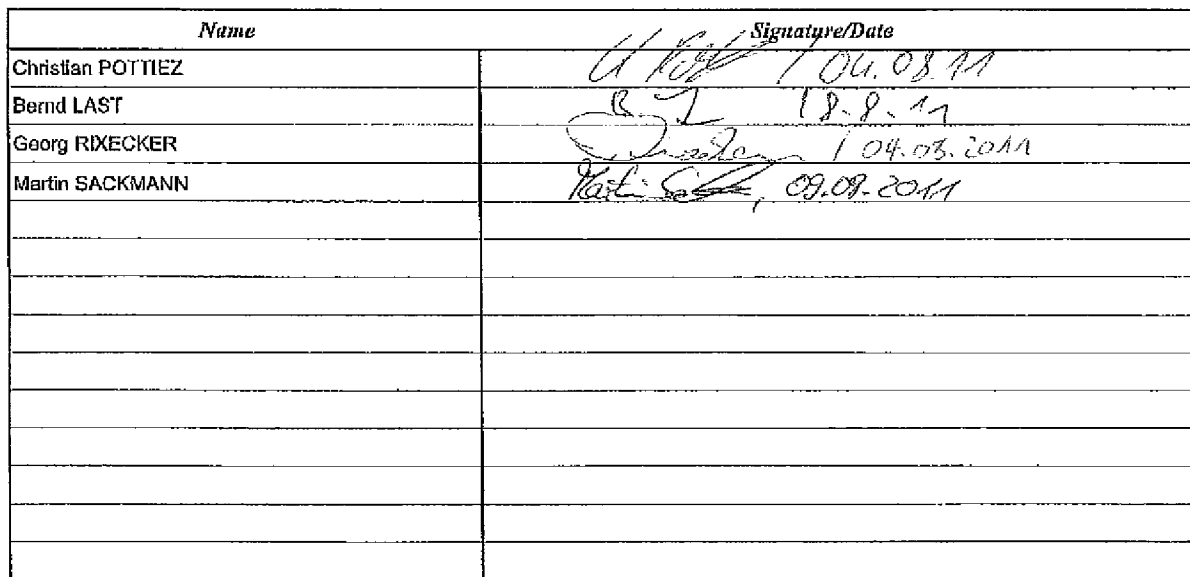 Name Signature/Date
Christian POTTIEZ / 04.08.11
Bernd LAST 18.8.11
Georg RIXECKER / 04.08.2011
Martin SACKMANN Martin, 09.08.2011